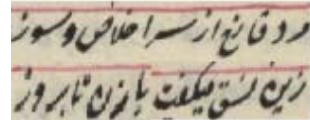 ود قانع از سر اخلاص و سوز
زین نسق میگفت با زن تا بروز